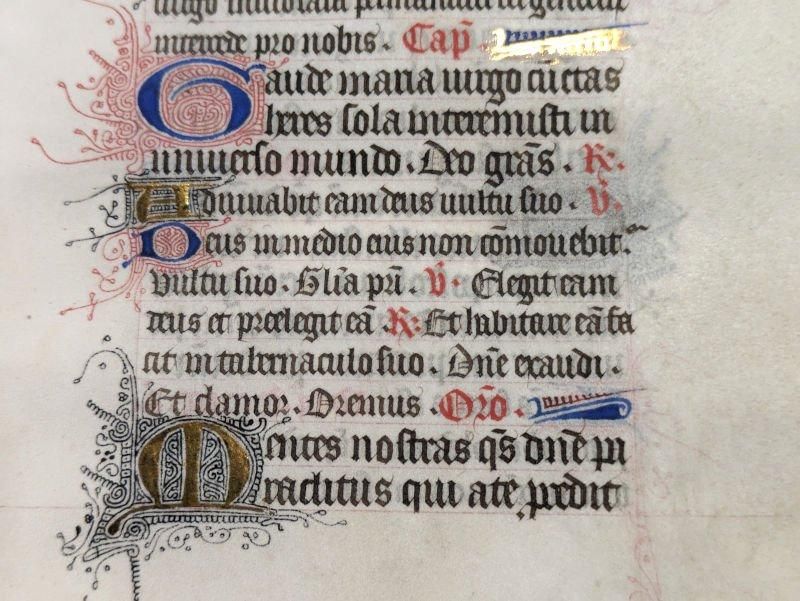 uirgo inuiolata
intercede pro nobis. Cap̄
Gaude maria uirgo cūctas
hereses sola interemisti in
uniuerso mundo. Deo grās. R.
Adiuuabit eam deus uultu suo. V̄.
Deus in medio eius non cōmouebit.
Vultu suo. Glīa prī. V̄. Elegit eam
deus et preelegit eā. R: Et habitare eā fa
cit in tabernaculo suo. Dnē exaudi.
Et clamor. Oremus. Orō.
Mentes nostras qs̄ dnē pa
raclitus qui a te p̲cedit